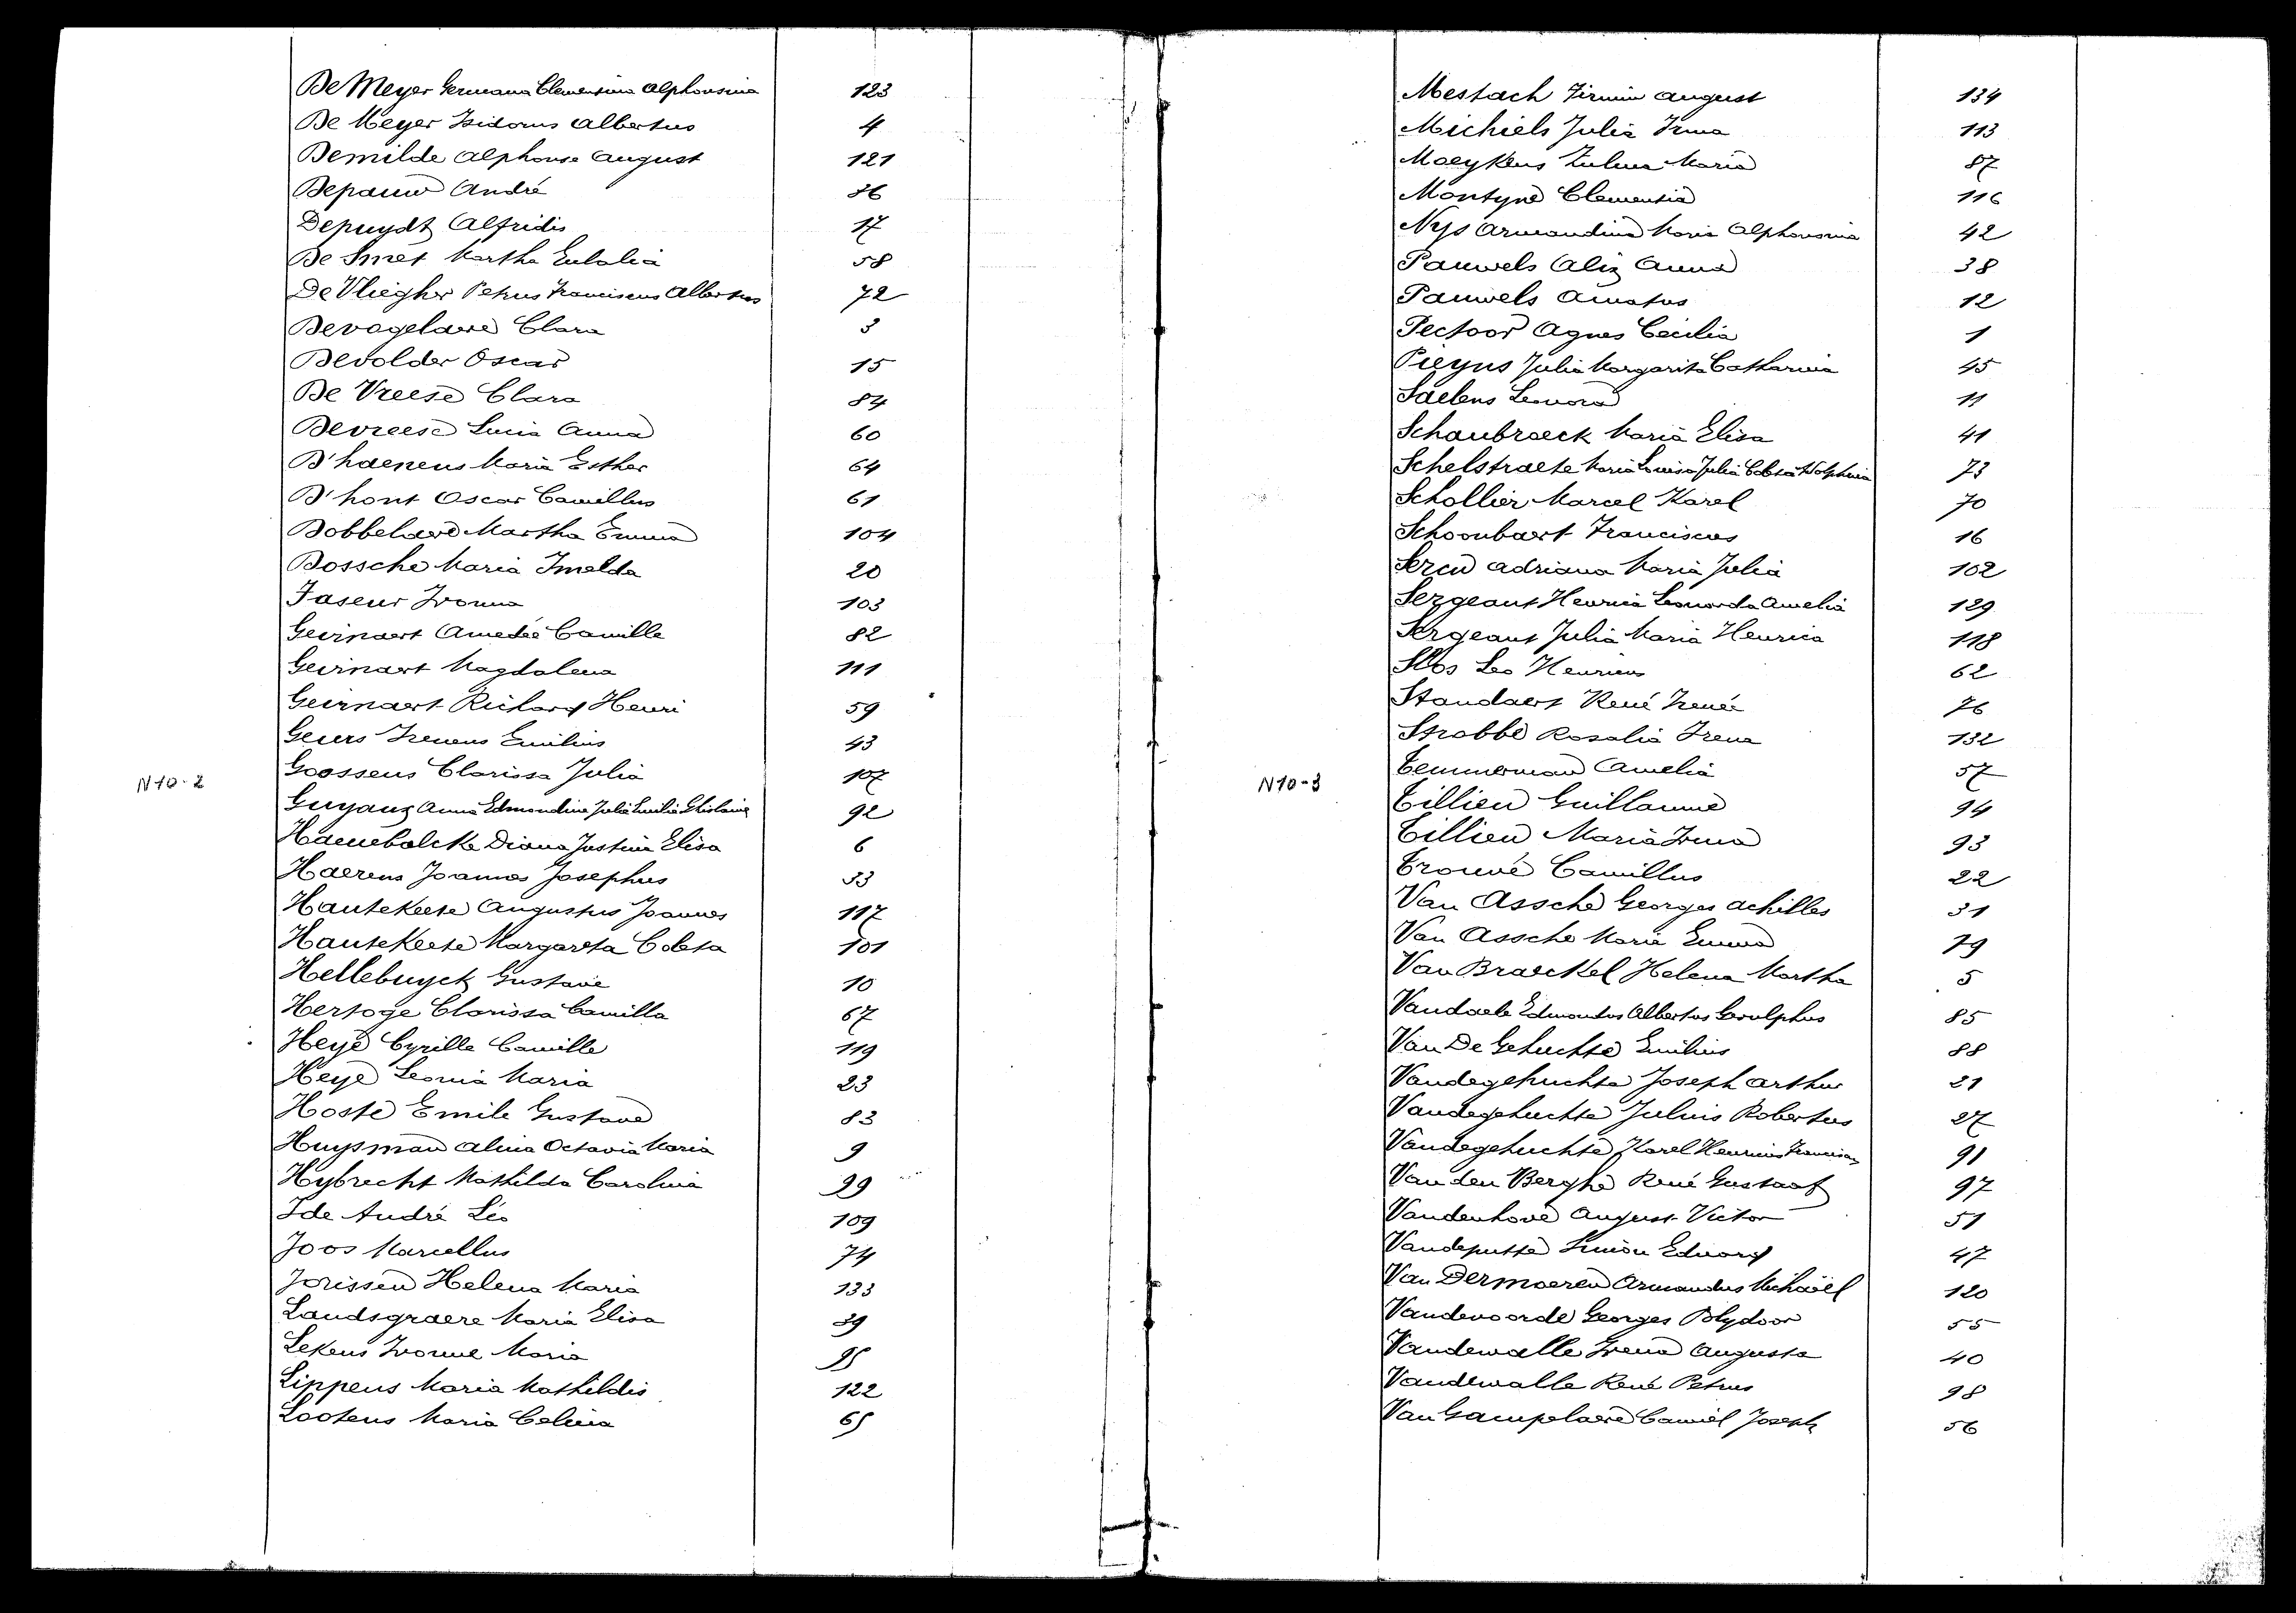 De Meyer Germana Clementina Alphonsina 123
De Meyer Isidorus Albertus 4
Demilde Alphonse August 121
Depauw André 86
Depuydt Alfridis 17
De Smet Martha Eulalia 58
De Vliegher Petrus Franciscus Albertus 72
Devogelaere Clara 3
Devolder Oscar 15
De Vreese Clara 84
Devreese Lucia Anna 60
D'haenens Maria Esther 64
D'hont Oscar Camillus 61
Dobbelaere Martha Emma 104
Dossche Maria Imelda 20
Faseur Ivonna 103
Geirnaert Amedée Camille 82
Geirnaert Magdalena 111
Geirnaert Richard Henri 59
Geurs Ireneus Emilius 43
N10-2
Goossens Clarissa Julia 107
Guyanz Anna Edmondine Julia Emilia Ghislaine 92
Haenebalcke Diana Justina Elisa 6
Haerens Joannes Josephus 33
Hautekeete Augustus Joannes 117
Hautekeete Margareta Coleta 101
Hellebuyck Gustave 10
Hertoge Clarissa Camilla 67
Heye Cyrille Camille 119
Heye Leonia Maria 23
Hoste Emile Gustave 83
Huysman Alina Octavia Maria 9
Hybrecht Mathilda Carolina 99
Ide André Léo 109
Joos Marcellus 74
Jorissen Helena Maria 133
Landsgraere Maria Elisa 39
Lekens Ivonne Maria 95
Lippens Maria Mathildis 122
Lootens Maria Celina 65
Mestach Firmin August 134
Michiels Julia Irma 113
Maeykens Zulma Maria 87
Montyne Clementia 116
Nys Armandina Maria Alphonsina 42
Pauwels Aliz Anna 38
Pauwels Amatus 12
Pectoor Agnes Cecilia 1
Pieyns Julia Margarita Catharina 45
Saelens Leonora 11
Schaubroeck Maria Elisa 41
Schelstraete Maria Louisa Julia Coleta Adolphina 73
Schollier Marcel Karel 70
Schoonbaert Franciscus 16
Sercu Adriana Maria Julia 102
Sergeant Henrica Leonarda Amelia 129
Sergeant Julia Maria Henrica 118
Slos Leo Henricus 62
Standaert René Irenée 76
Strobbe Rosalia Irena 132
N10-3
Temmerman Amelia 57
Tillieu Guillaume 94
Tillieu Maria Irma 93
Trouvé Camillus 22
Van Assche Georges Achilles 31
Van Assche Maria Emma 79
Van Braeckel Helena Martha 5
Vandaele Edmondus Albertus Gerulphus 85
Van De Gehuchte Emilius 88
Vandegehuchte Joseph Arthur 21
Vandegehuchte Julius Robertus 27
Vandegehuchte Karel Henricus Franciscus 91
Van den Berghe René Gustaaf 97
Vandenhove August Victor 51
Vandeputte Simon Eduard 47
Van Dermaeren Armandus Michaël 120
Vandevoorde Georges Polydoor 55
Vandewalle Irena Augusta 40
Vandewalle René Petrus 98
Van Gampelaere Camiel Joseph 56